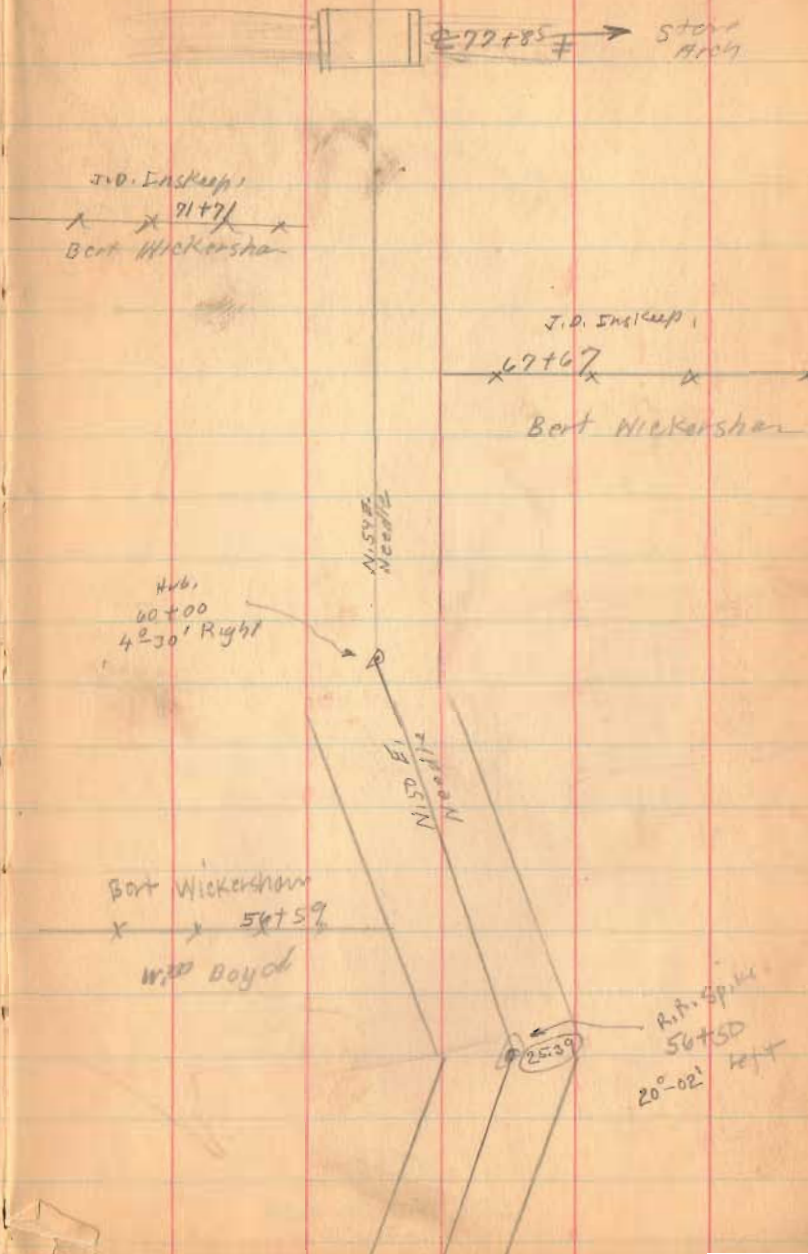 ℄ 77+85
Stone
Arch
J.D. Inskeep,
71+71
Bert Wickersham
J.D. Inskeep,
67+67
Bert Wickersham
N.54 E.
Needle
Hub,
60+00
4°-30' Right
N.50 E.
Needle
Bert Wickersham
56+59
Will
R.R. Spike
56+50
20°-02' Left
25.39